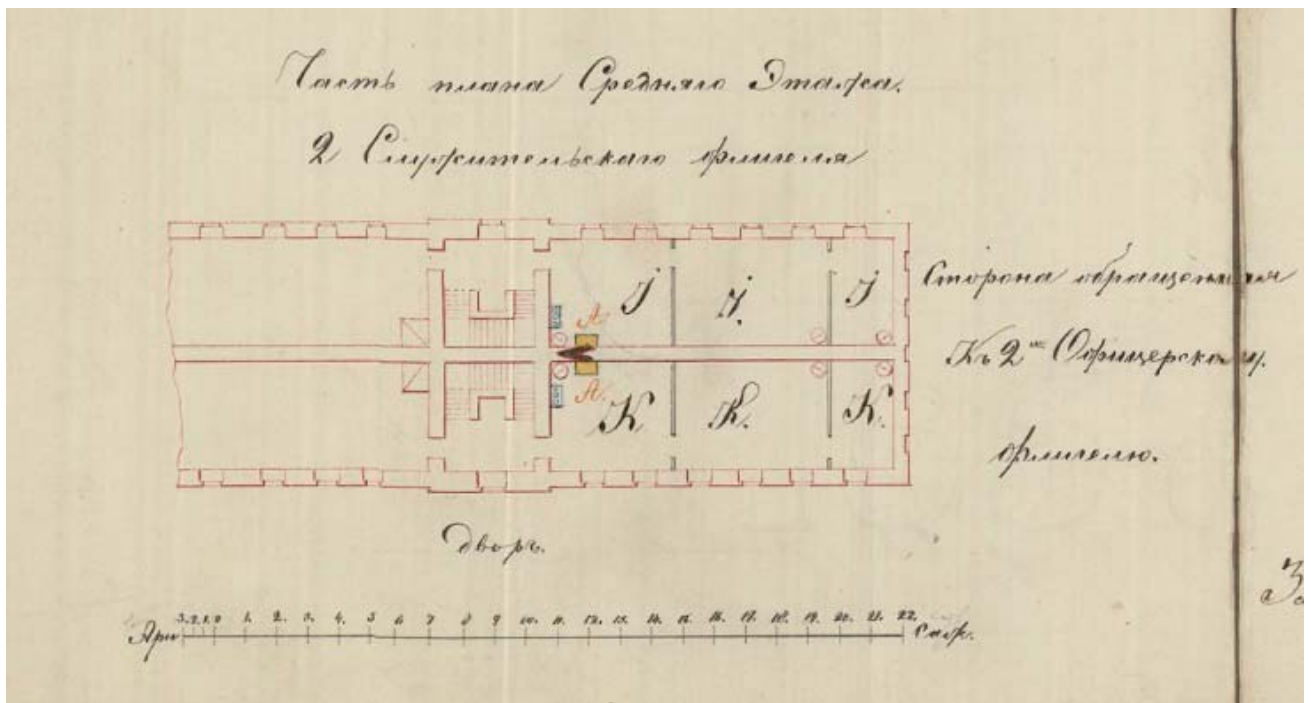 Часть плана Средняго Этажа.
2 Служительскаго флигеля
Сторона обращенная
Къ 2му Офицерскому.
флигелю.
J J. J
А.
А.
К К. К.
дворъ.
Арш 3. 2. 1. 0 1. 2. 3. 4. 5 6 7 8 9 10. 11. 12. 13. 14. 15. 16. 17. 18. 19. 20. 21. 22. Саж.